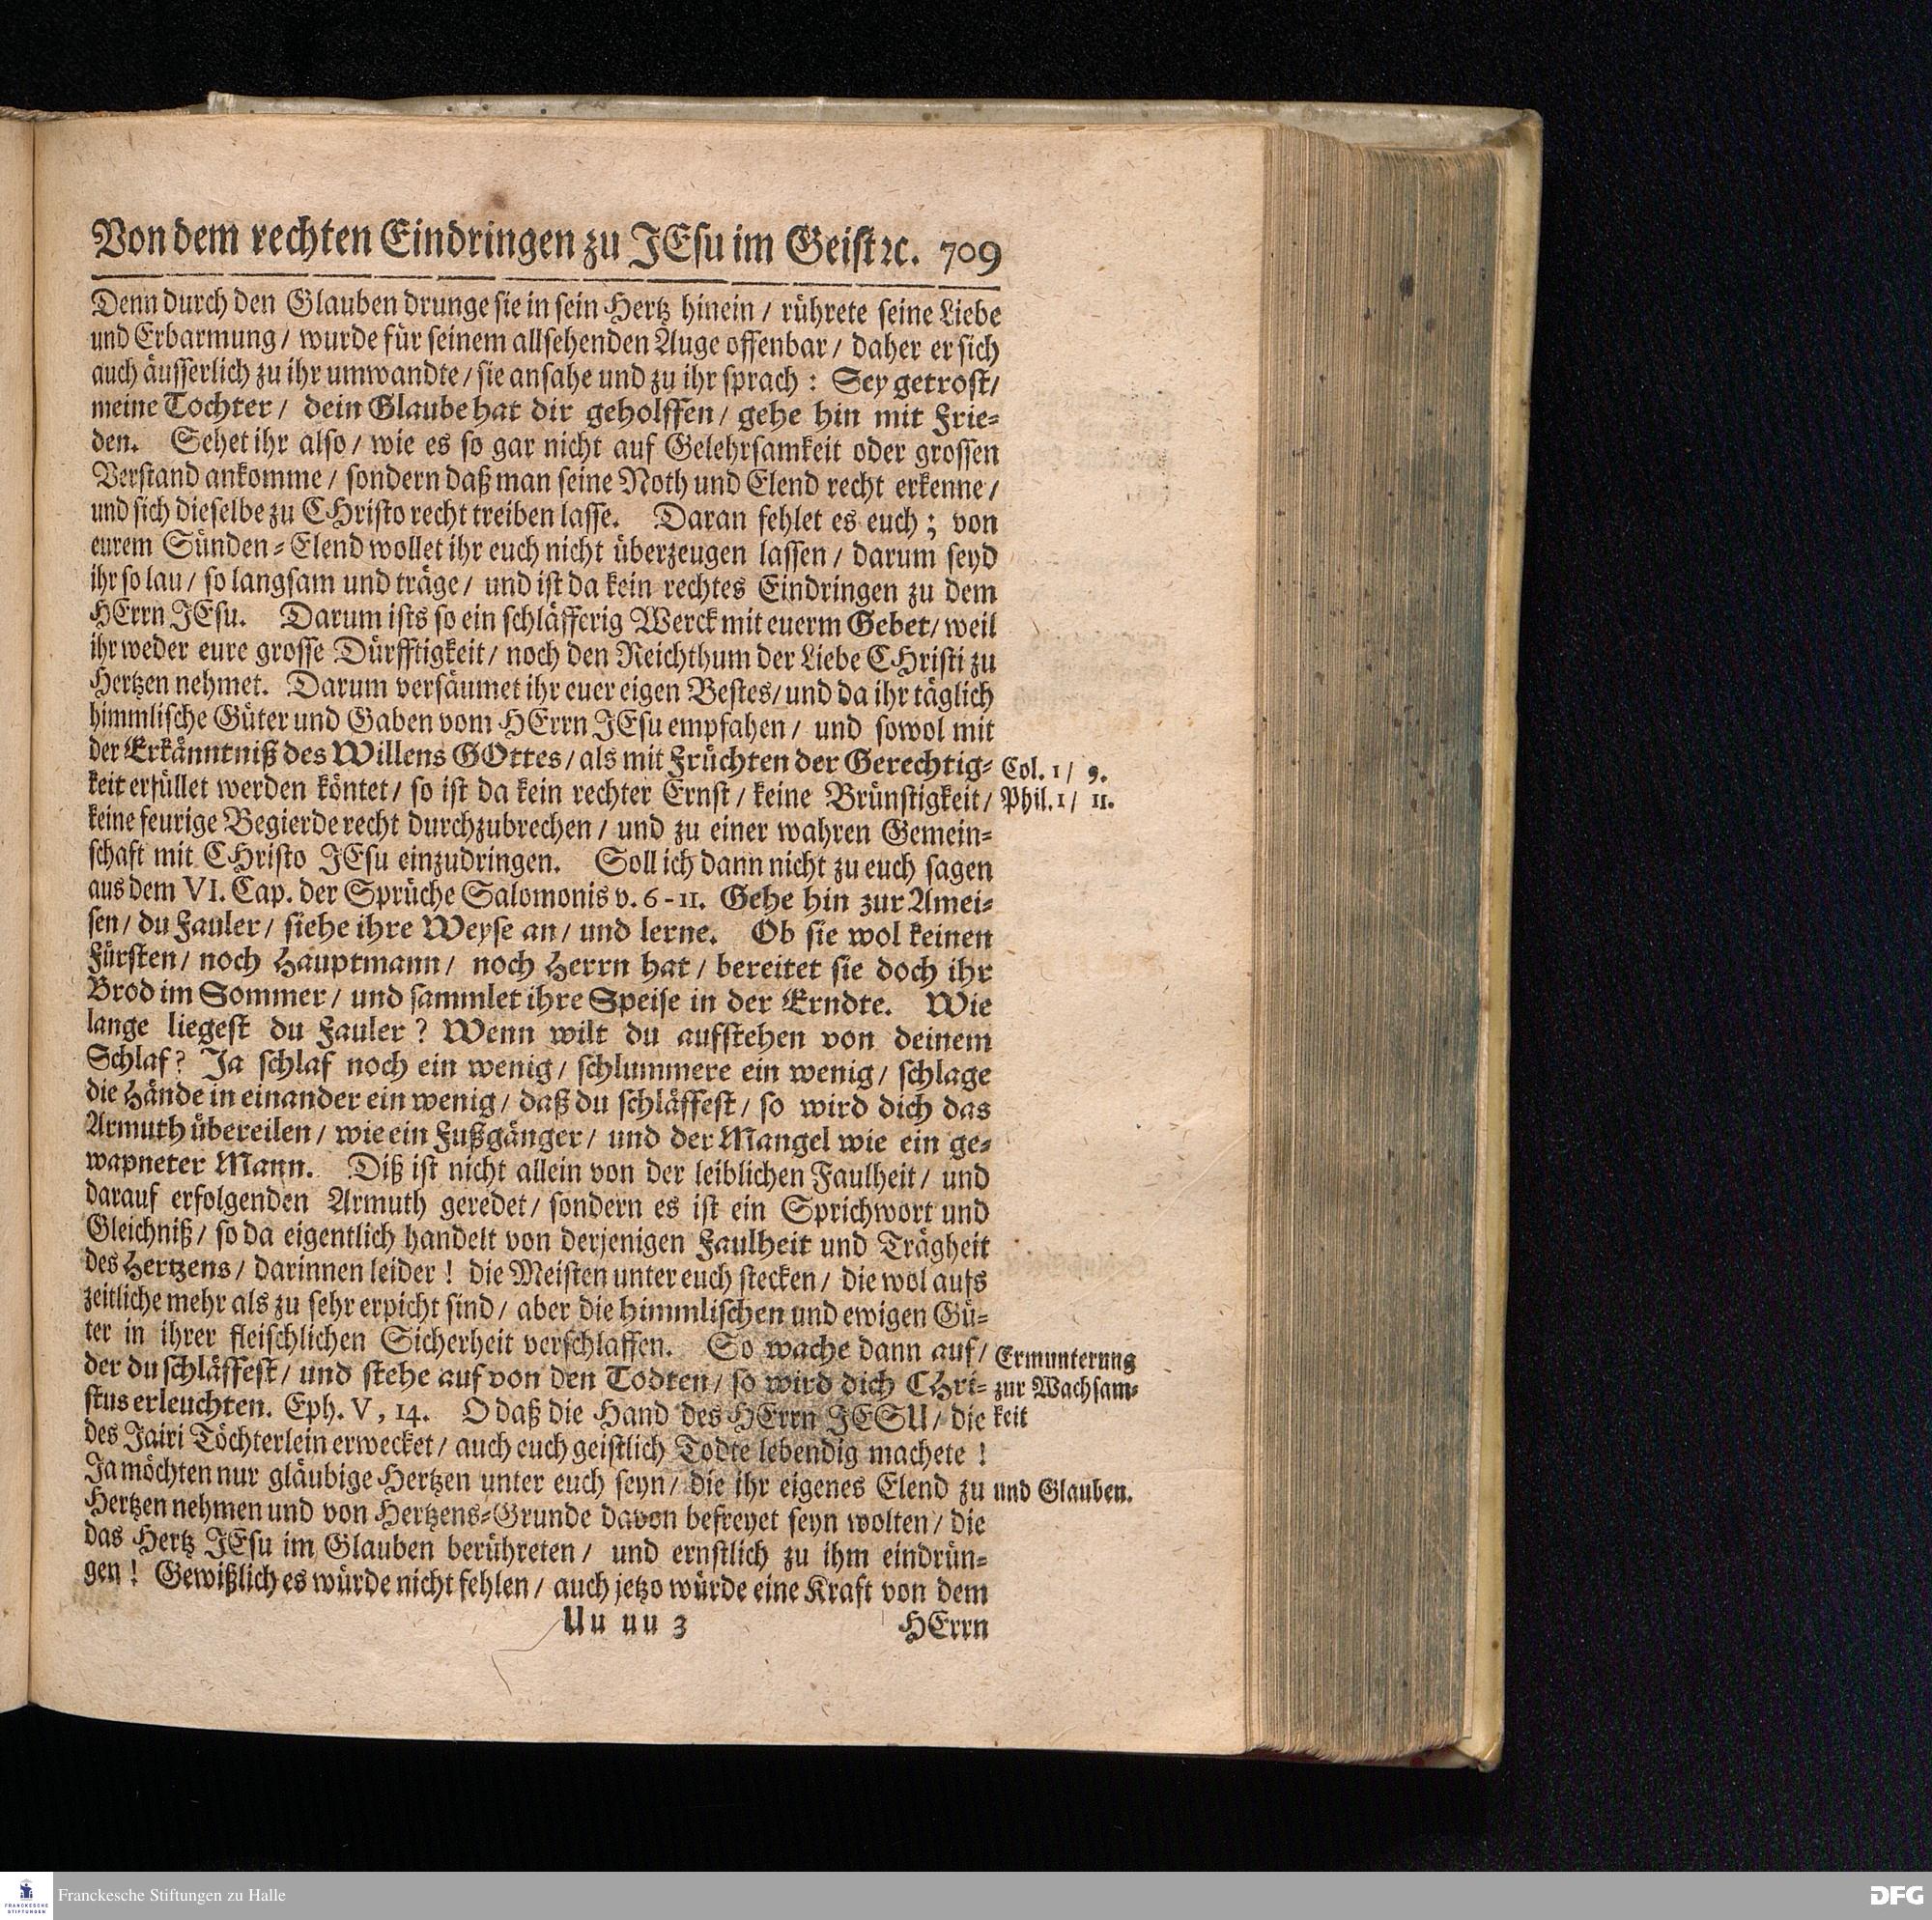 Von dem rechten Eindringen zu JEsu im Geist ꝛc. 709
Denn durch den Glauben drunge sie in sein Hertz hinein / rührete seine Liebe
und Erbarmung / wurde für seinem allsehenden Auge offenbar / daher er sich
auch äusserlich zu ihr umwandte / sie ansahe und zu ihr sprach : Sey getrost /
meine Tochter / dein Glaube hat dir geholffen / gehe hin mit Frie-
den. Sehet ihr also / wie es so gar nicht auf Gelehrsamkeit oder grossen
Verstand ankomme / sondern daß man seine Noth und Elend recht erkenne /
und sich dieselbe zu CHristo recht treiben lasse. Daran fehlet es euch ; von
eurem Sünden-Elend wollet ihr euch nicht überzeugen lassen / darum seyd
ihr so lau / so langsam und träge / und ist da kein rechtes Eindringen zu dem
HErrn JEsu. Darum ists so ein schläfferig Werck mit euerm Gebet / weil
ihr weder eure grosse Dürfftigkeit / noch den Reichthum der Liebe CHristi zu
Hertzen nehmet. Darum versäumet ihr euer eigen Bestes / und da ihr täglich
himmlische Güter und Gaben vom HErrn JEsu empfahen / und sowol mit
der Erkänntniß des Willens GOttes / als mit Früchten der Gerechtig- Col. 1 / 9.
keit erfüllet werden köntet / so ist da kein rechter Ernst / keine Brünstigkeit / Phil. 1 / 11.
keine feurige Begierde recht durchzubrechen / und zu einer wahren Gemein-
schaft mit CHristo JEsu einzudringen. Soll ich dann nicht zu euch sagen
aus dem VI. Cap. der Sprüche Salomonis v. 6 - 11. Gehe hin zur Amei-
sen / du Fauler / siehe ihre Weyse an / und lerne. Ob sie wol keinen
Fürsten / noch Hauptmann / noch Herrn hat / bereitet sie doch ihr
Brod im Sommer / und sammlet ihre Speise in der Erndte. Wie
lange liegest du Fauler ? Wenn wilt du aufstehen von deinem
Schlaf ? Ja schlaf noch ein wenig / schlummere ein wenig / schlage
die Hände in einander ein wenig / daß du schläffest / so wird dich das
Armuth übereilen / wie ein Fußgänger / und der Mangel wie ein ge-
wapneter Mann. Diß ist nicht allein von der leiblichen Faulheit / und
darauf erfolgenden Armuth geredet / sondern es ist ein Sprichwort und
Gleichniß / so da eigentlich handelt von derjenigen Faulheit und Trägheit
des Hertzens / darinnen leider ! die Meisten unter euch stecken / die wol aufs
zeitliche mehr als zu sehr erpicht sind / aber die himmlischen und ewigen Gü-
ter in ihrer fleischlichen Sicherheit verschlaffen. So wache dann auf / Ermunterung
der du schläffest / und stehe auf von den Todten / so wird dich CHri- zur Wachsam-
stus erleuchten. Eph. V , 14. O daß die Hand des HErrn JESU / die keit
des Jairi Töchterlein erwecket / auch euch geistlich Todte lebendig machete !
Ja möchten nur gläubige Hertzen unter euch seyn / die ihr eigenes Elend zu und Glauben.
Hertzen nehmen und von Hertzens-Grunde davon befreyet seyn wolten / die
das Hertz JEsu im Glauben berühreten / und ernstlich zu ihm eindrün-
gen ! Gewißlich es würde nicht fehlen / auch jetzo würde eine Kraft von dem
Uu uu 3 HErrn
FRANCKESCHE STIFTUNGEN
Franckesche Stiftungen zu Halle
DFG